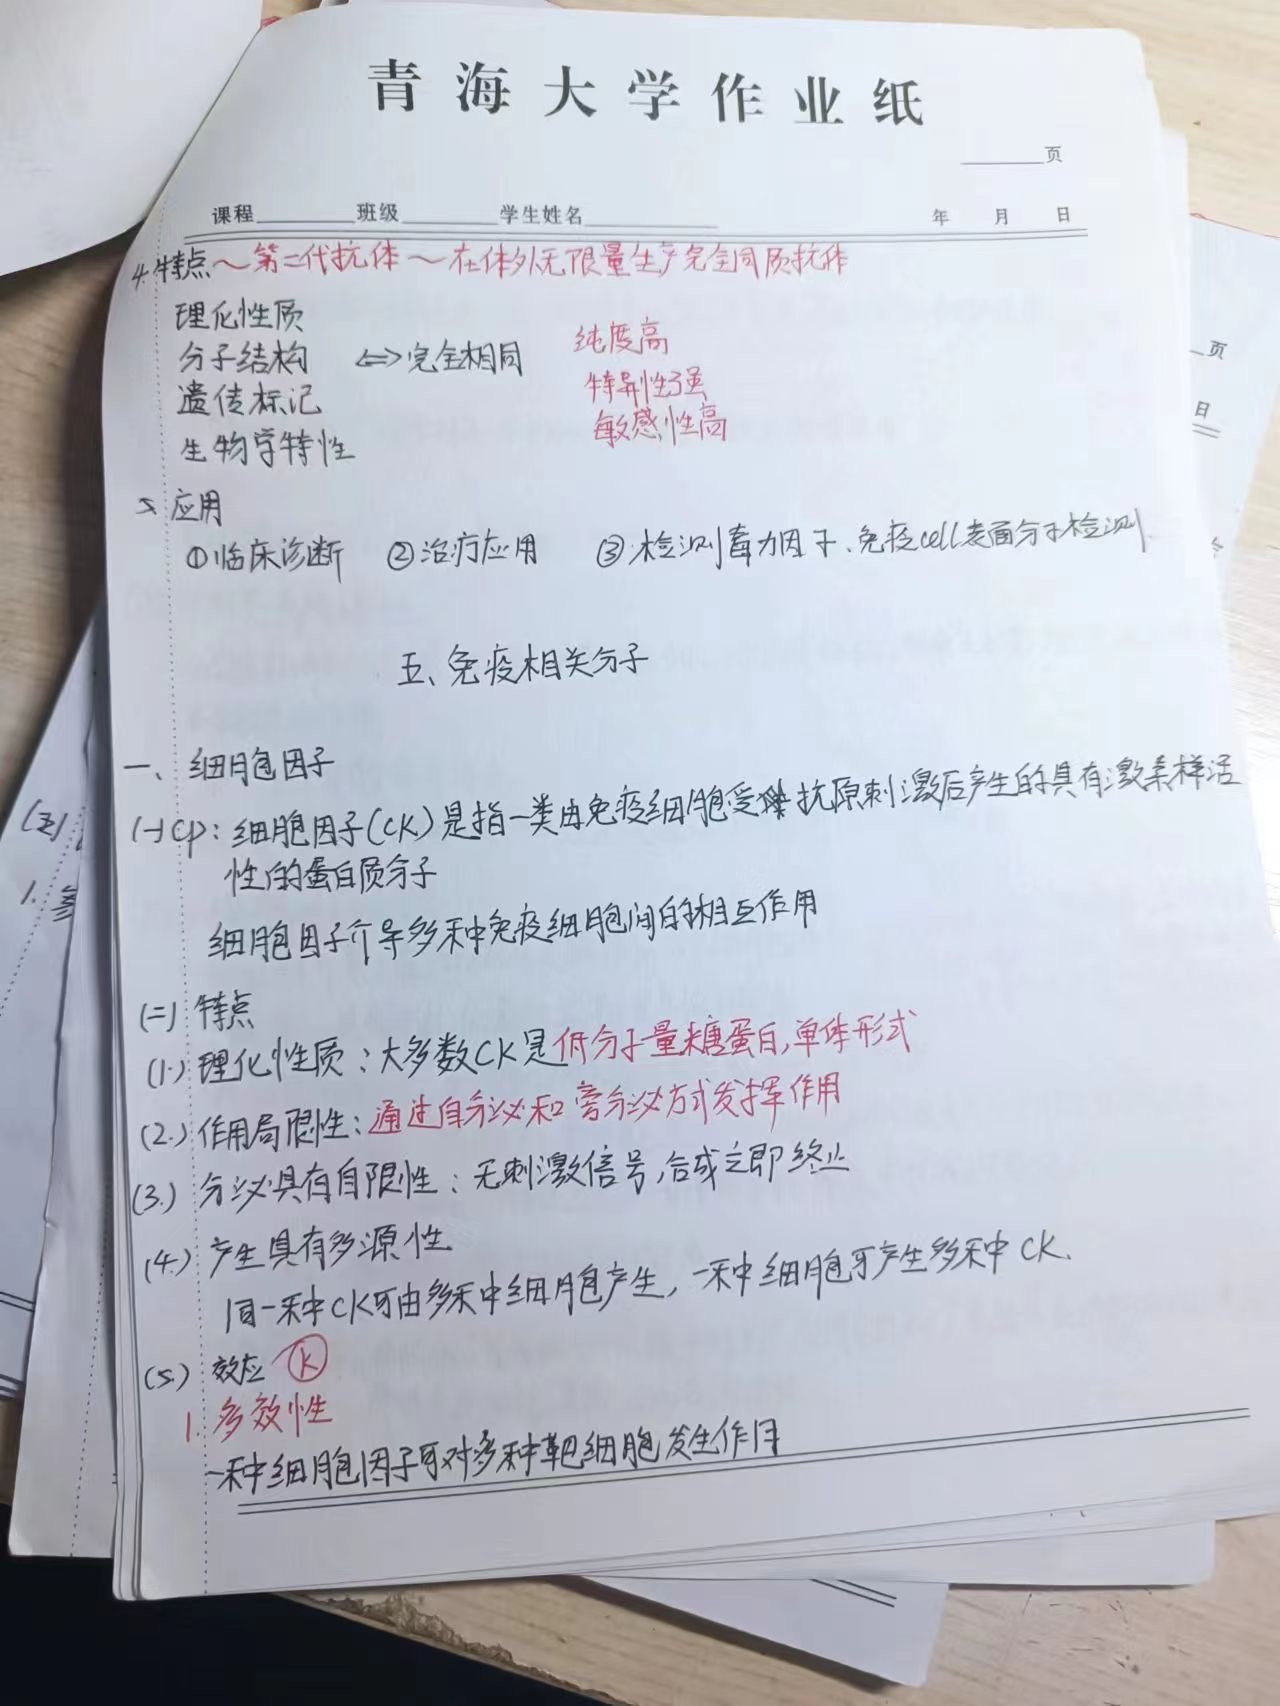 青海大学作业纸
页
课程 班级 学生姓名 年 月 日
4.特点~第二代抗体~在体外无限量生产完全同质抗体
理化性质
分子结构 <=>完全相同 纯度高
遗传标记 特异性强
生物学特性 敏感性高
5.应用
①临床诊断 ②治疗应用 ③检测毒力因子、免疫cell表面分子检测.
五、免疫相关分子
一、细胞因子
(一)cp:细胞因子(CK)是指一类由免疫细胞受抗原刺激后产生的具有激素样活
性的蛋白质分子
细胞因子介导多种免疫细胞间的相互作用
(二)特点
(1.)理化性质:大多数CK是低分子量糖蛋白,单体形式
(2.)作用局限性:通过自分泌和旁分泌方式发挥作用
(3.)分泌具有自限性:无刺激信号,合成立即终止
(4.)产生具有多源性
同一种CK可由多种细胞产生,一种细胞可产生多种CK.
(5.)效应 K
1.多效性
一种细胞因子可对多种靶细胞发生作用
页
日